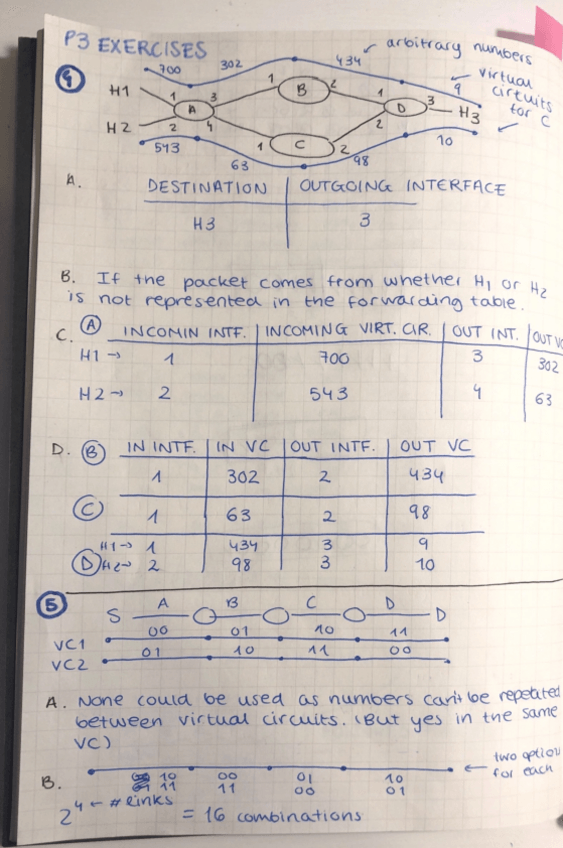 P3 EXERCISES
arbitrary numbers
virtual circuits for C
4
700 302 434 9
H1 1 3 1 B 2 1 D 3
A H3
H2 2 4 1 C 2 2
543 63 98 10
A. DESTINATION OUTGOING INTERFACE
H3 3
B. If the packet comes from whether H1 or H2
is not represented in the forwarding table.
C. A INCOMIN INTF. INCOMING VIRT. CIR. OUT INT. OUT VC
H1 → 1 700 3 302
H2 → 2 543 4 63
D. B IN INTF. IN VC OUT INTF. OUT VC
1 302 2 434
C 1 63 2 98
H1 → 1 434 3 9
D H2 → 2 98 3 10
5
S A B C D D
VC1 00 01 10 11
VC2 01 10 11 00
A. None could be used as numbers can't be repetated
between virtual circuits. (But yes in the same
VC)
B. two option
for each
10 00 01 10
11 11 00 01
2^4 ← # links
= 16 combinations